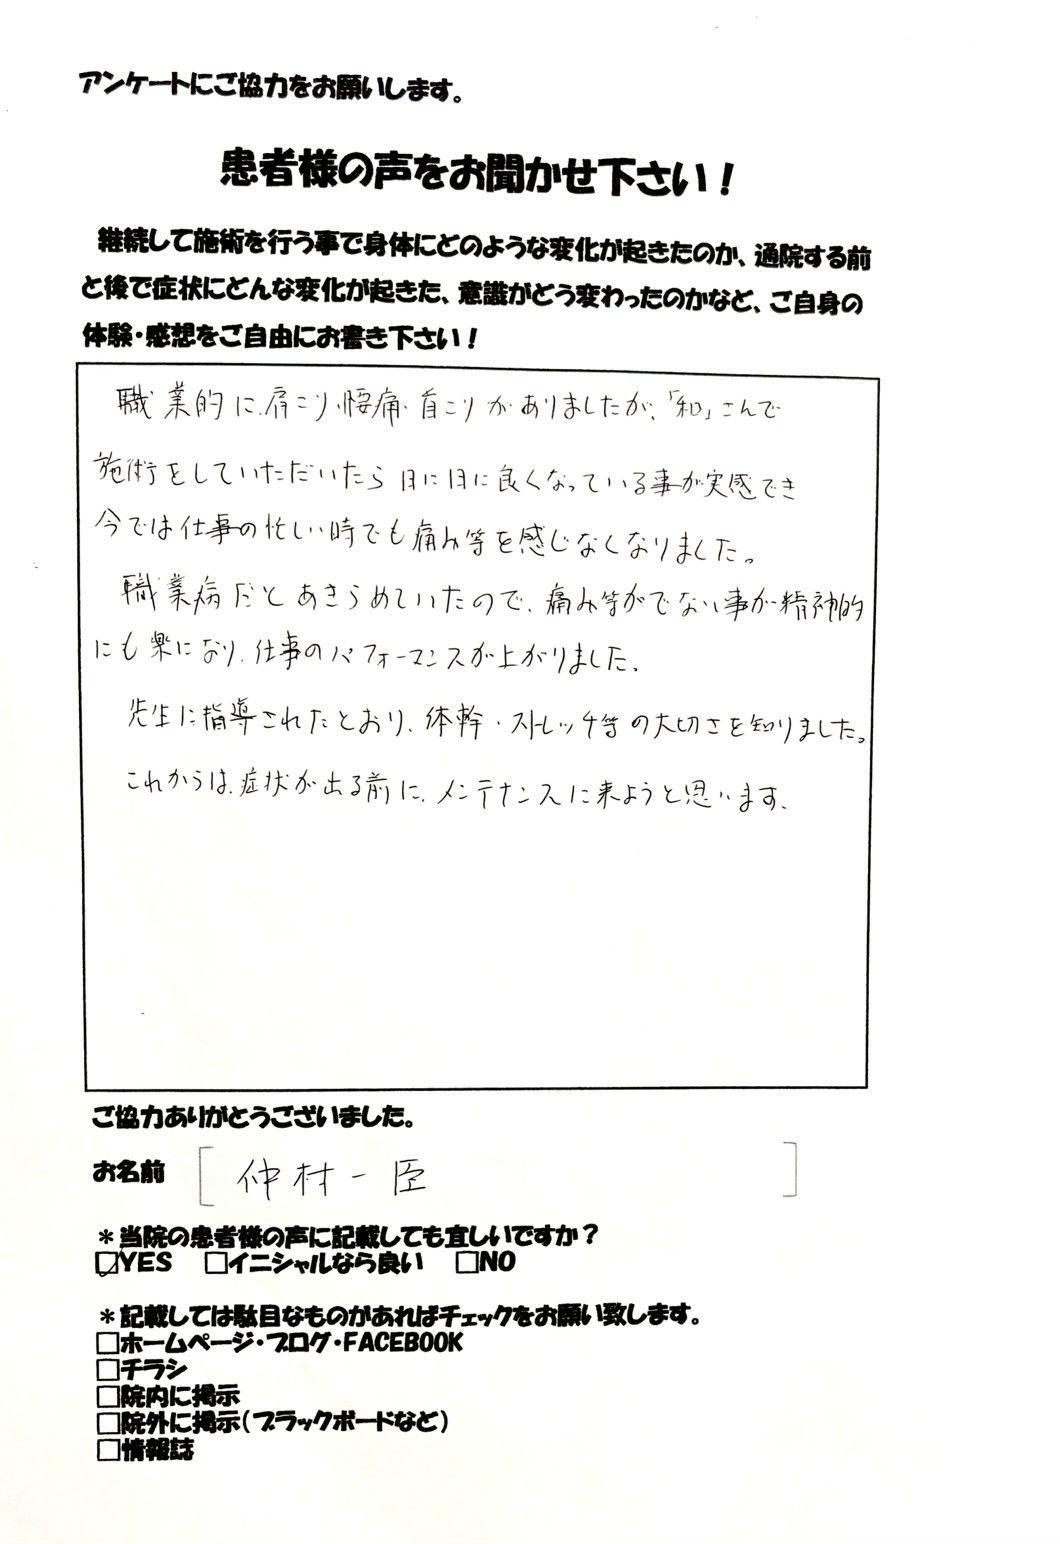 アンケートにご協力をお願いします。
患者様の声をお聞かせ下さい！
継続して施術を行う事で身体にどのような変化が起きたのか、通院する前
と後で症状にどんな変化が起きた、意識がどう変わったのかなど、ご自身の
体験・感想をご自由にお書き下さい！
職業的に、肩こり、腰痛、首こりがありましたが、「和」さんで
施術をしていただいたら日に日に良くなっている事が実感でき
今では仕事の忙しい時でも痛み等を感じなくなりました。
職業病だとあきらめていたので、痛み等がでない事が精神的
にも楽になり、仕事のパフォーマンスが上がりました。
先生に指導されたとおり、体幹・ストレッチ等の大切さを知りました。
これからは、症状が出る前に、メンテナンスに来ようと思います。
ご協力ありがとうございました。
お名前 [仲村一臣]
＊当院の患者様の声に記載しても宜しいですか？
☑YES □イニシャルなら良い □NO
＊記載しては駄目なものがあればチェックをお願い致します。
□ホームページ・ブログ・FACEBOOK
□チラシ
□院内に掲示
□院外に掲示（ブラックボードなど）
□情報誌